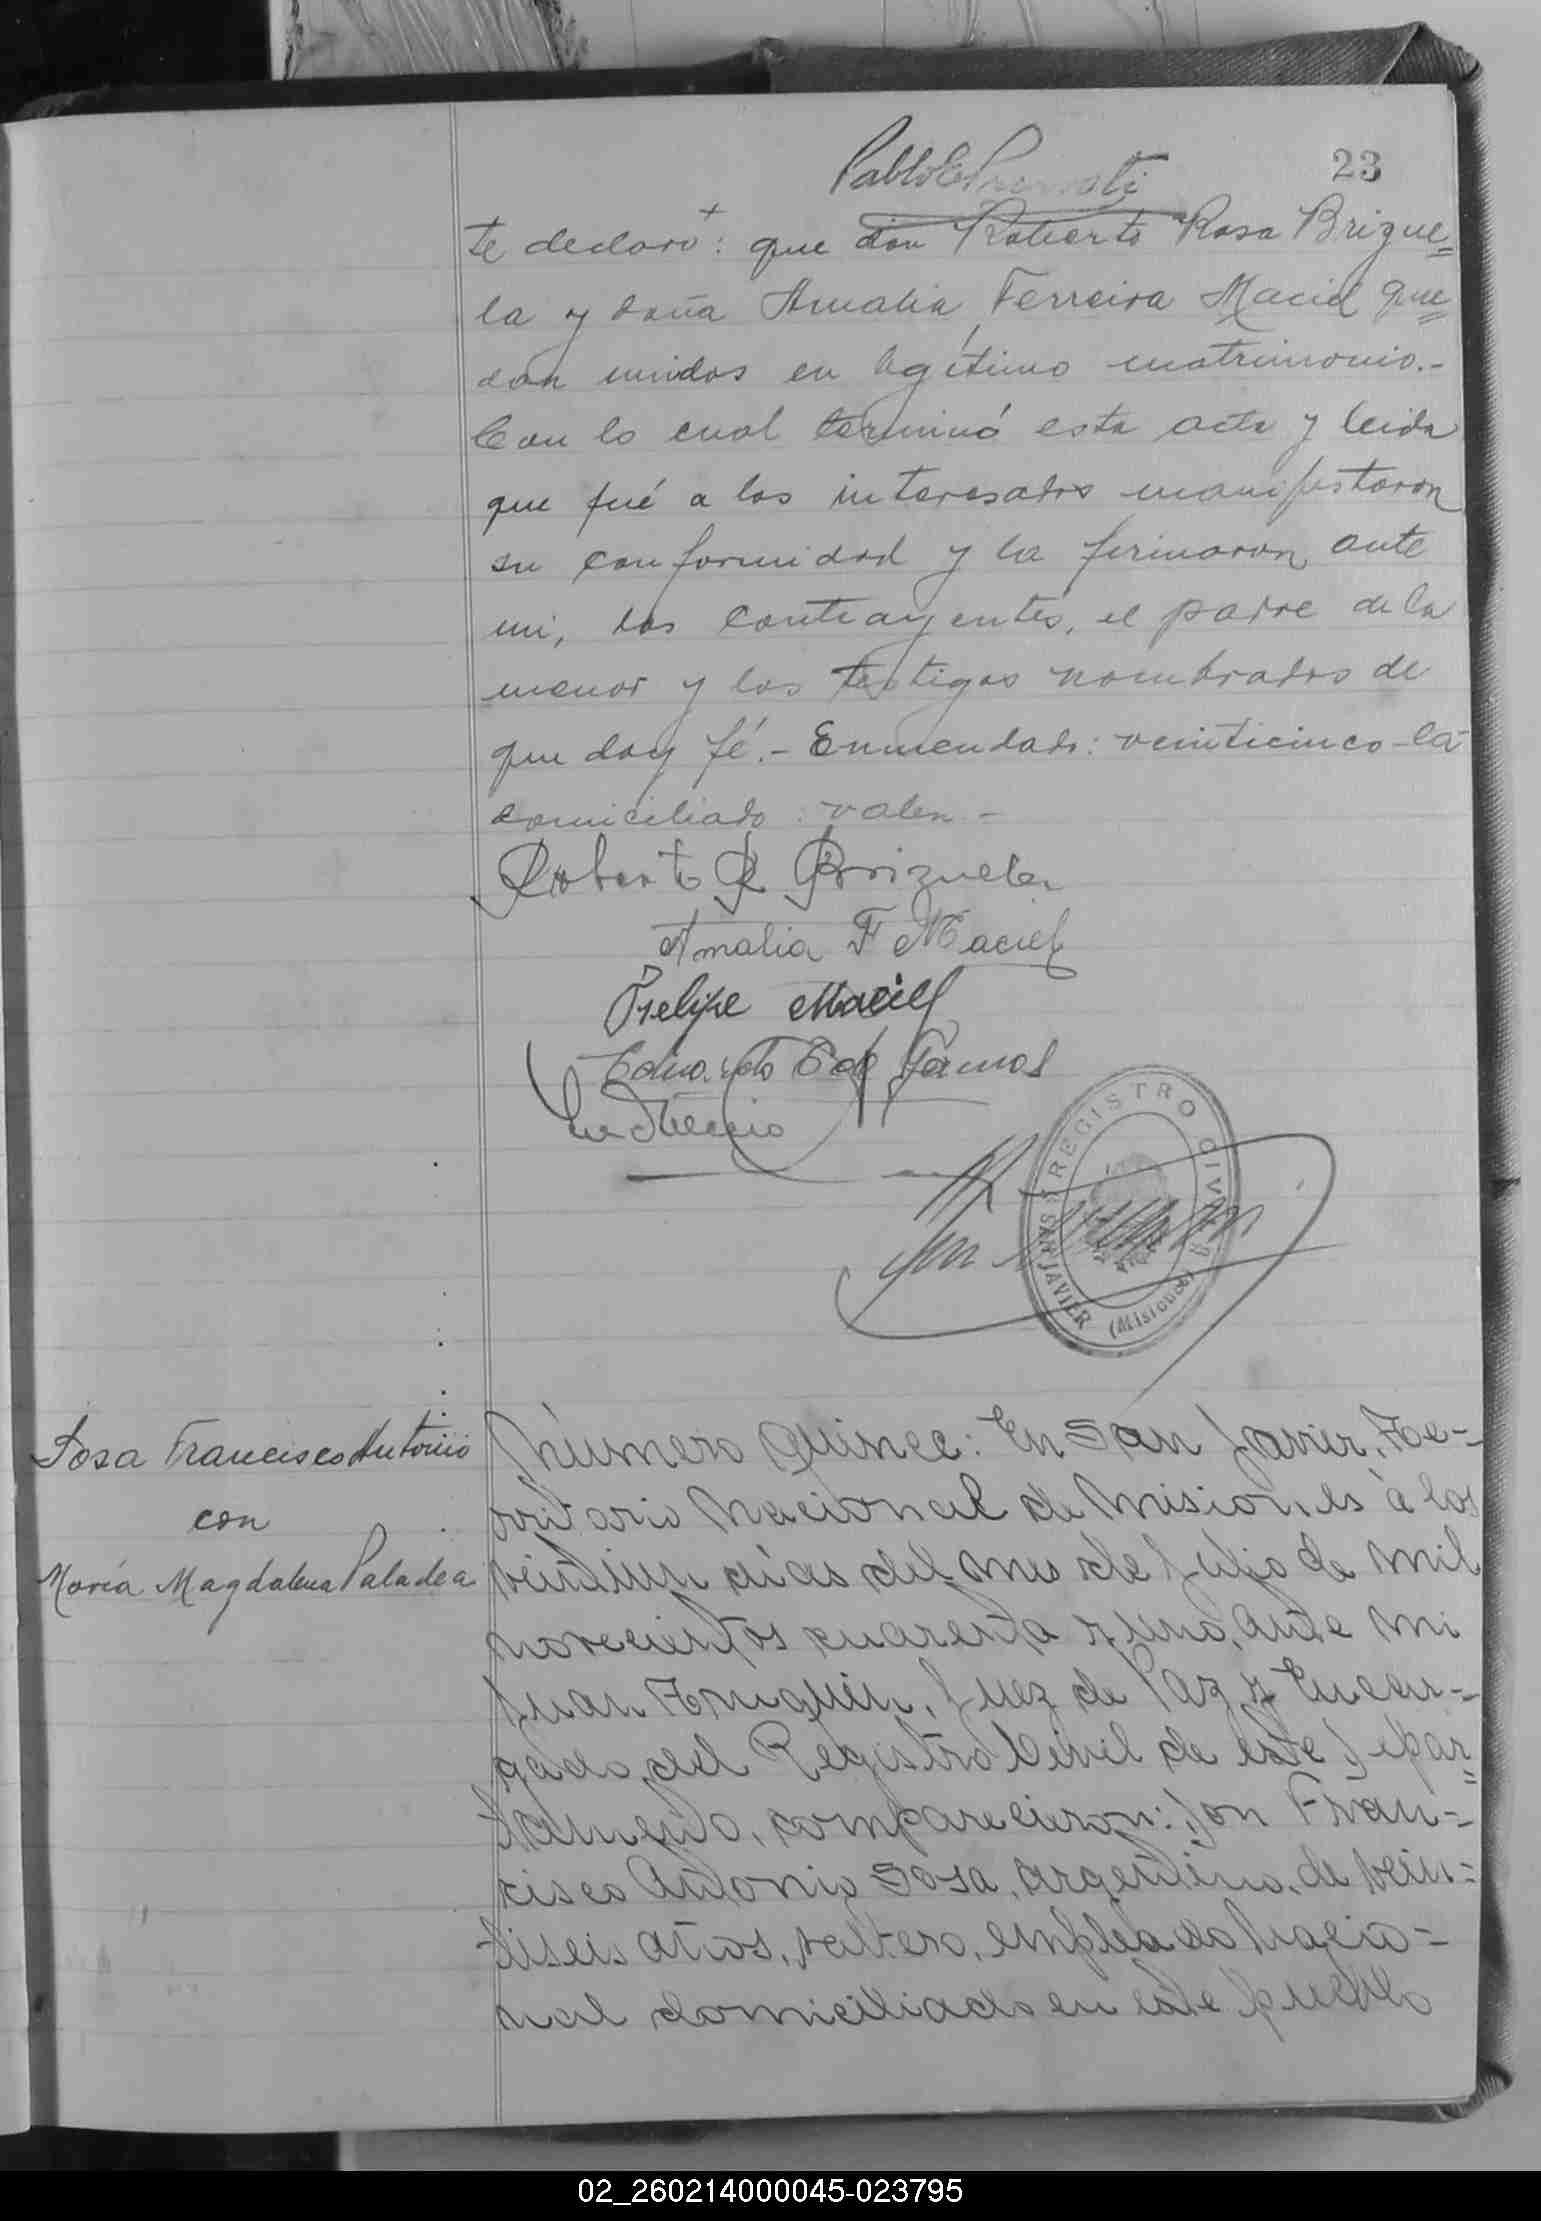 23
Pablo E
te declaro: que don Roberto Rosa Brizue=
la y doña Amalia Ferreira Maciel que=
dan unidos en legítimo matrimonio.-
Con lo cual terminó esta acta y leida
que fué a los interesados manifestaron
su conformidad y la firmaron, ante
mi, los contrayentes, el padre de la
menor y los testigos nombrados de
que doy fé.- Enmendado: veinticinco-la-
domiciliado: valen-
Roberto R Brizuela
Amalia F Maciel
Felipe Maciel
Eduardo
REGISTRO CIVIL
SAN JAVIER (Misiones)
Sosa Francisco Antonio
con
María Magdalena Paladea
Número Quince: En San Javier, Te-
rritorio Nacional de Misiones à los
veintiun días del mes de Julio de mil
novecientos cuarenta y uno, ante mi
Juan, Juez de Paz y Encar-
gado del Registro Civil de este Depar=
tamento, comparecieron: Don Fran-
cisco Antonio Sosa, argentino, de vein-
tiseis años, soltero, empleado Nacio=
nal domiciliado en este pueblo
02_260214000045-023795